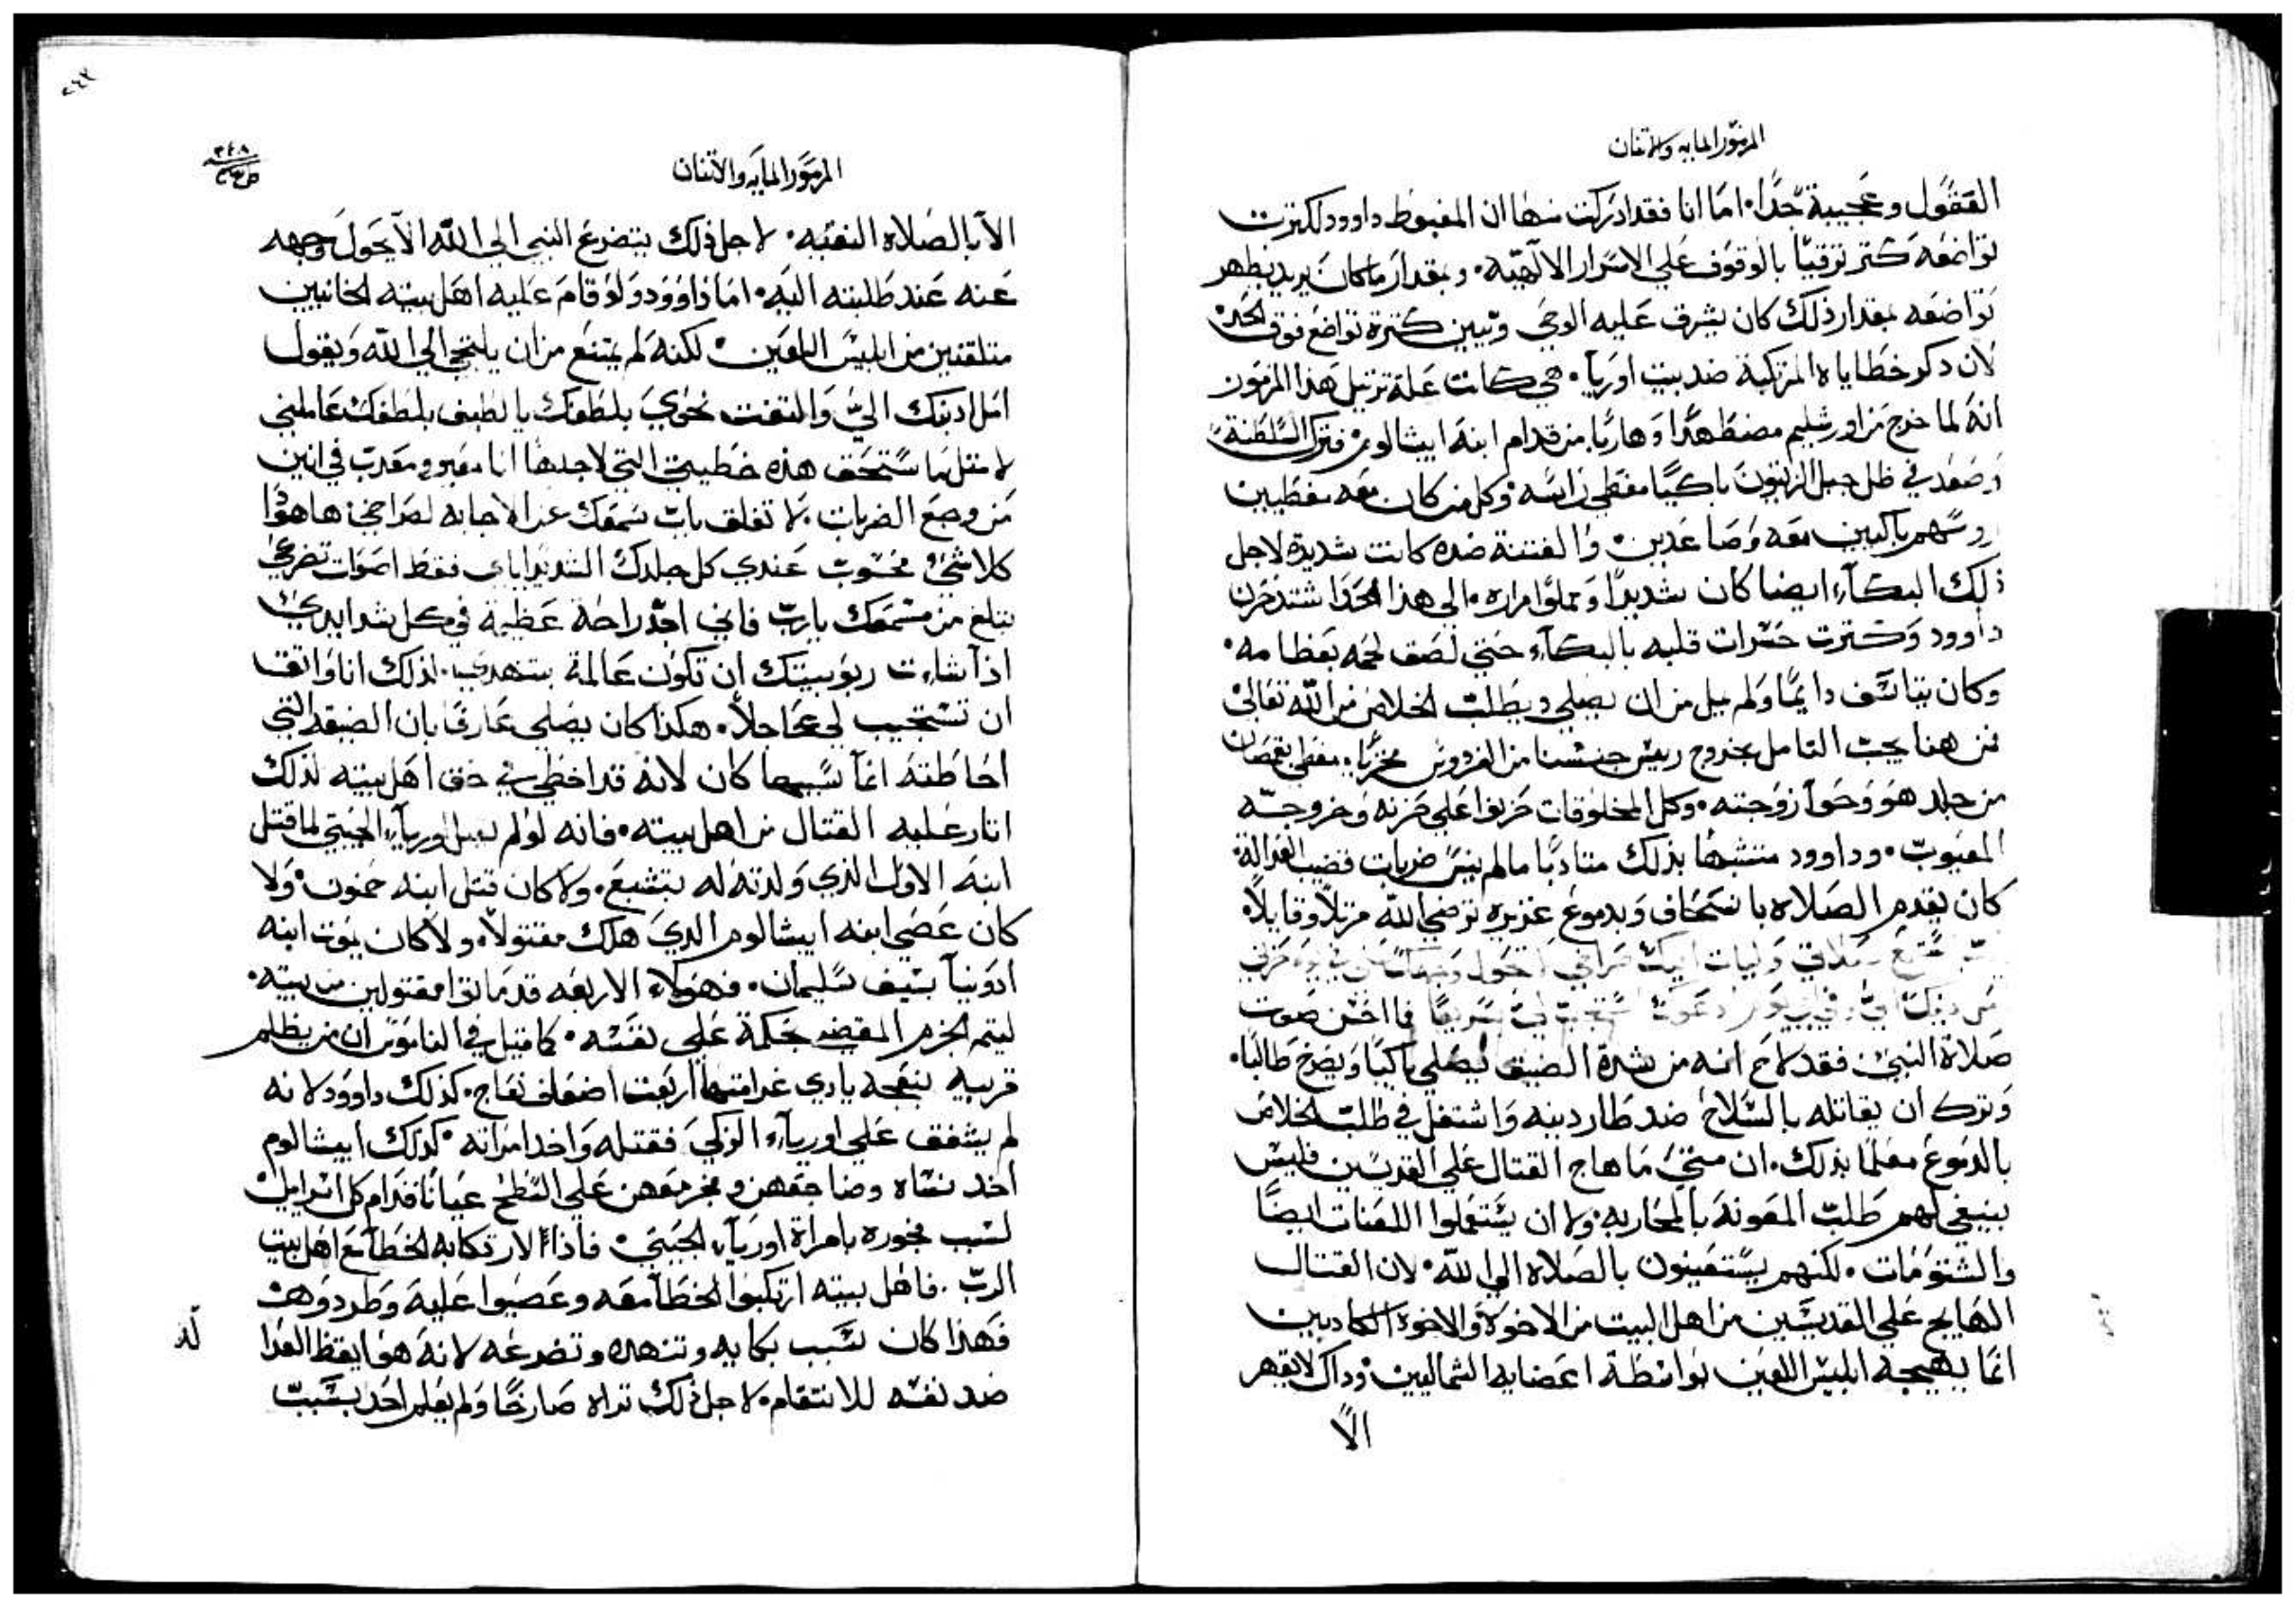 المزمور المايه والاتنان
العقول وعجيبة جدًا. اما انا فقد ادركت منها ان المغبوط داوود لكترت
تواضعه كتر ترقيًا بالوقوف علي الاسرار الالهيه. وبمقدار ما كان يريد يظهر
تواضعه بمقدار ذلك كان يشرف عليه الوحي وتبين كترة تواضع فوق الحد
لان دكر خطاياه المرتكبة ضد بيت اوريا. هي كانت علة ترتيل هذا المزمور
انه لما خرج من اورشليم مضطهدًا وهاربًا من قدام ابنه ابيشالوم فترك السلطنة
وصعد في ظل جبل الزيتون باكيًا مغطي راسه وكل من كان معه مغطيين
روسهم باكيين معه وصاعدين. والفتنة ضده كانت شديدة لاجل
ذلك البكاء ايضا كان شديدًا ومملوًا مراره. الي هذا الحد اشتد حزن
داوود وكترت حسرات قلبه بالبكاء حتي لصق لحمه بعظامه.
وكان يتاسف دايمًا ولم يمل من ان يصلي ويطلب الخلاص من الله تعالي
فمن هنا يجب التامل بخروج رييس جنسنا من الفردوس مخزيًا. مغطي بقمصان
من جلد هو وحوا زوجته. وكل المخلوقات حزنوا علي حزنه وخروجه
المعيوب. وداوود متشبهًا بذلك متادبًا ما لم ينس ضربات قضيب العدالة.
كان يقدم الصلاه باستحقاف وبدموع غزيره ترضي الله مرتلًا وقايلًا.
صلاتي وليات اليك صراخي لا تحول وجهك عني في يوم حزني
ادعوك استجب لي سريعًا فما احسن صوت
صلاة النبي فقد لاح انه من شدة الضيق يصلي باكيًا ويصرخ طالبًا.
وترك ان يقاتله بالسلاح ضد طاردينه واشتغل في طلب الخلاص
بالدموع معلمًا بذلك. ان متي ما هاج القتال علي القديسين فليس
ينبغي لهم طلب المعونه بالمحاربه. ولا ان يستعملوا اللعنات ايضًا
والشتومات. لكنهم يستعينون بالصلاه الي الله. لان القتال
الهايج علي القديسين من اهل البيت من الاخوة والاخوة الكادبين
انما يهيجه ابليس اللعين بواسطة اعضايه الشماليين. وداك لا يقهر
الاّ
المزمور المايه والاتنان
٣٤٨
الا بالصلاه النقيه. لاجل ذلك يتضرع النبي الي الله الا يحول وجهه
عنه عند طلبته اليه. اما داوود ولو قام عليه اهل بيته الخاينين
متلقنين من ابليس اللعين. لكنه لم يمتنع من ان يلتجي الي الله ويقول
امل ادنك الي والتفت نحوي بلطفك يا لطيف بلطفك عاملني
لا مثل ما تستحق هذه خطيتي التي لاجلها انا مقهور ومعدب في انين
من وجع الضربات. لا تغلق باب سمعك عن الاجابه لصراخي. ها هوّا
كلاشي محسوب عندي كل جلدك الشديد اياي فقط اصوات تضرعي
تبلغ من مسمعك يا رب فاني اجد راحة عظيمة في كل شدايدي
اذا شاءت ربوبيتك ان تكون عالمة بتنهدي. لذلك انا واتقا
ان تستجيب لي عاجلًا. هكذا كان يصلي عارفا بان الضيقه التي
احاطته انما سببها كان لانه قد اخطي في حق اهل بيته لذلك
اتار عليه القتال من اهل بيته. فانه لو لم يقتل اورياء الحيتي لما قتل
ابنه الاول الذي ولدته له بتشبع. ولا كان قتل ابنه حمنون. ولا
كان عصي ابنه ابيشالوم الدي هلك مقتولًا. ولا كان يموت ابنه
ادونيا بسيف سليمان. فهولاء الاربعه قد ماتوا مقتولين من بيته.
ليتم الجزم المقضي حكمة علي نفسه. كما قيل في الناموس ان من يظلم
قريبه بنعجه يادي غرامتها اربعت اضعاف نعاج. كذلك داوود لانه
لم يشفق علي اورياء الزكي فقتله واخد امراته. كذلك ابيشالوم
اخد نساه وضاجعهن وفجر معهن علي السطح عيانًا قدام كل اسراييل
لسبب فجوره بامراة اورياء الحيتي. فاذًا لارتكابه الخطا مع اهل بيت
الرب. فاهل بيته ارتكبوا الخطا معه وعصيوا عليه وطردوه
فهذا كان سبب بكايه وتنهده وتضرعه لانه هو ايقظ العدا
ضد نفسه للانتقام. لاجل ذلك تراه صارخًا ولم يعلم احد بسبب